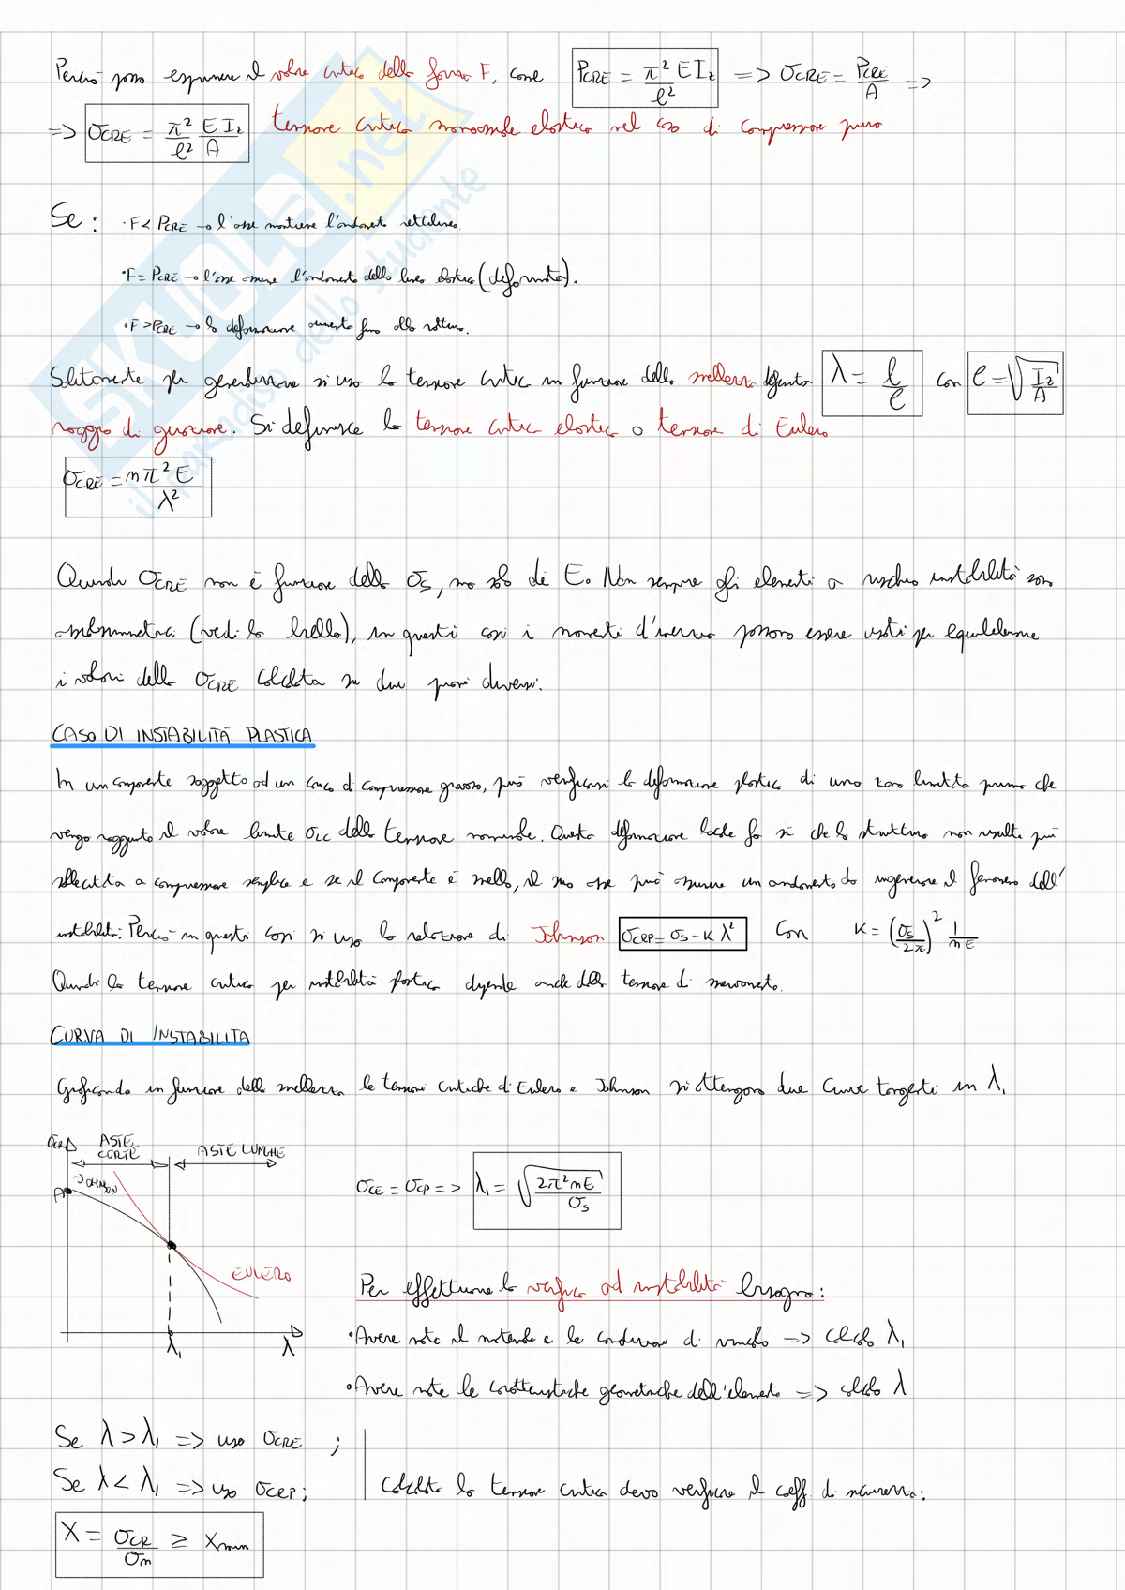 Perciò posso esprimere il valore critico della forza F, come PCRE = π² E I₂ / l² => σCRE = PCRE / A =>
=> σCRE = π²/l² E I₂/A tensione critica nominale elastica nel caso di compressione pura
Se: · F < PCRE → l'asse mantiene l'andamento rettilineo.
· F = PCRE → l'asse assume l'andamento della linea elastica (deformata).
· F > PCRE → la deformazione aumenta fino alla rottura.
Solitamente per generalizzare si usa la tensione critica in funzione della snellezza λ = l/ρ con ρ = √(I₂/A)
raggio di girazione. Si definisce la tensione critica elastica o tensione di Eulero
σCRE = nπ² E / λ²
Quindi σCRE non è funzione della σs, ma solo di E. Non sempre gli elementi a rischio instabilità sono
assialsimmetrici (vedi la biella), in questi casi i momenti d'inerzia possono essere usati per equilibrare
i valori della σCRE calcolata su due piani diversi.
CASO DI INSTABILITÀ PLASTICA
In un componente soggetto ad un carico di compressione gravoso, può verificarsi la deformazione plastica di una zona limitata prima che
venga raggiunto il valore limite σcc della tensione nominale. Questa deformazione locale fa sì che la struttura non risulta più
sollecitata a compressione semplice e se il componente è snello, il suo asse può assumere un andamento da ingenerare il fenomeno dell'
instabilità. Perciò in questi casi si usa la relazione di Johnson σCRP = σs - K λ² Con K = (σs/2π)² 1/nE
Quindi la tensione critica per instabilità plastica dipende anche dalla tensione di snervamento.
CURVA DI INSTABILITÀ
Graficando in funzione della snellezza le tensioni critiche di Eulero e Johnson si ottengono due curve tangenti in λ₁
σCR ASTE CORTE ASTE LUNGHE
A JOHNSON
EULERO
λ₁ λ
σCE = σCP => λ₁ = √(2π²nE / σs)
Per effettuare la verifica ad instabilità bisogna:
· Avere note il materiale e le condizioni di vincolo => calcolo λ₁
· Avere note le caratteristiche geometriche dell'elemento => calcolo λ
Se λ > λ₁ => uso σCRE ;
Se λ < λ₁ => uso σCRP ;
Calcolata la tensione critica devo verificare il coeff. di sicurezza:
X = σCR / σn ≥ Xmin
SKUOLA.net
il paradiso dello studente